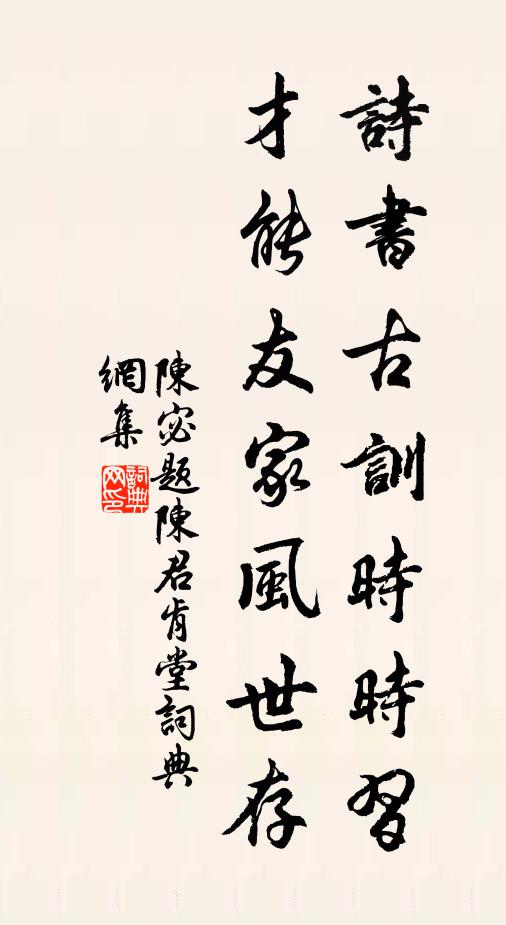 詩書古訓時時習
才能友家風世存
陳宓題陳君肯堂詞典
網集
詞典網印